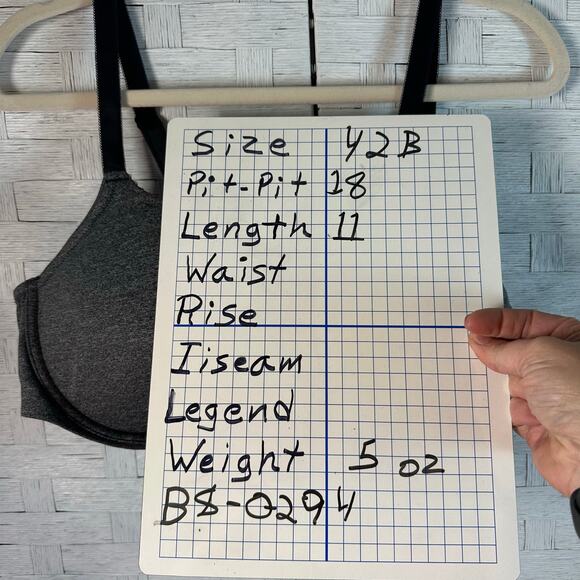 Size 42B
Pit-Pit 18
Length 11
Waist
Rise
Iiseam
Legend
Weight 5 oz
BS-0294